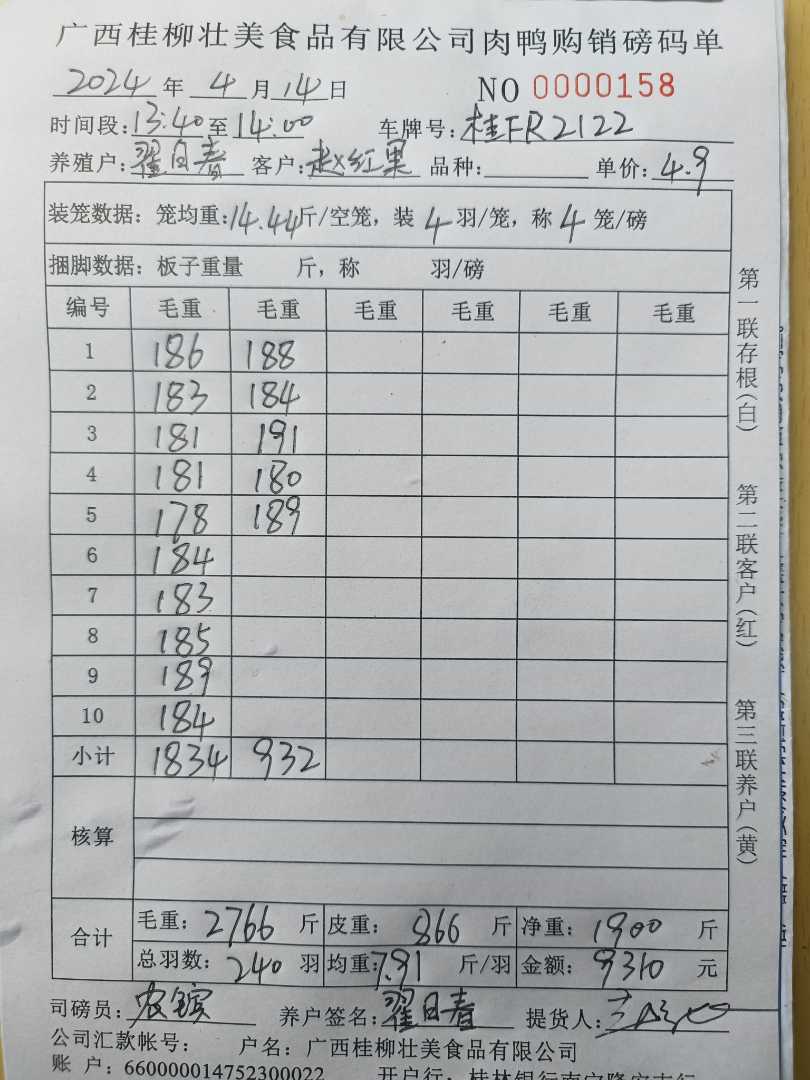 广西桂柳壮美食品有限公司肉鸭购销磅码单
2024 年 4 月 14 日 NO 0000158
时间段: 13:40 至 14:00 车牌号: 桂FR2122
养殖户: 翟日春 客户: 赵红果 品种: 单价: 4.9
装笼数据: 笼均重: 14.44 斤/空笼, 装 4 羽/笼, 称 4 笼/磅
捆脚数据: 板子重量 斤, 称 羽/磅
编号 毛重 毛重 毛重 毛重 毛重 毛重
1 186 188
2 183 184
3 181 191
4 181 180
5 178 189
6 184
7 183
8 185
9 189
10 184
小计 1834 932
核算
合计 毛重: 2766 斤 皮重: 866 斤 净重: 1900 斤
总羽数: 240 羽 均重: 7.91 斤/羽 金额: 9310 元
司磅员: 农镔 养户签名: 翟日春 提货人:
公司汇款帐号: 户名: 广西桂柳壮美食品有限公司
账 户: 660000014752300022 开户行: 桂林银行南宁隆安支行
第一联存根(白)
第二联客户(红)
第三联养户(黄)